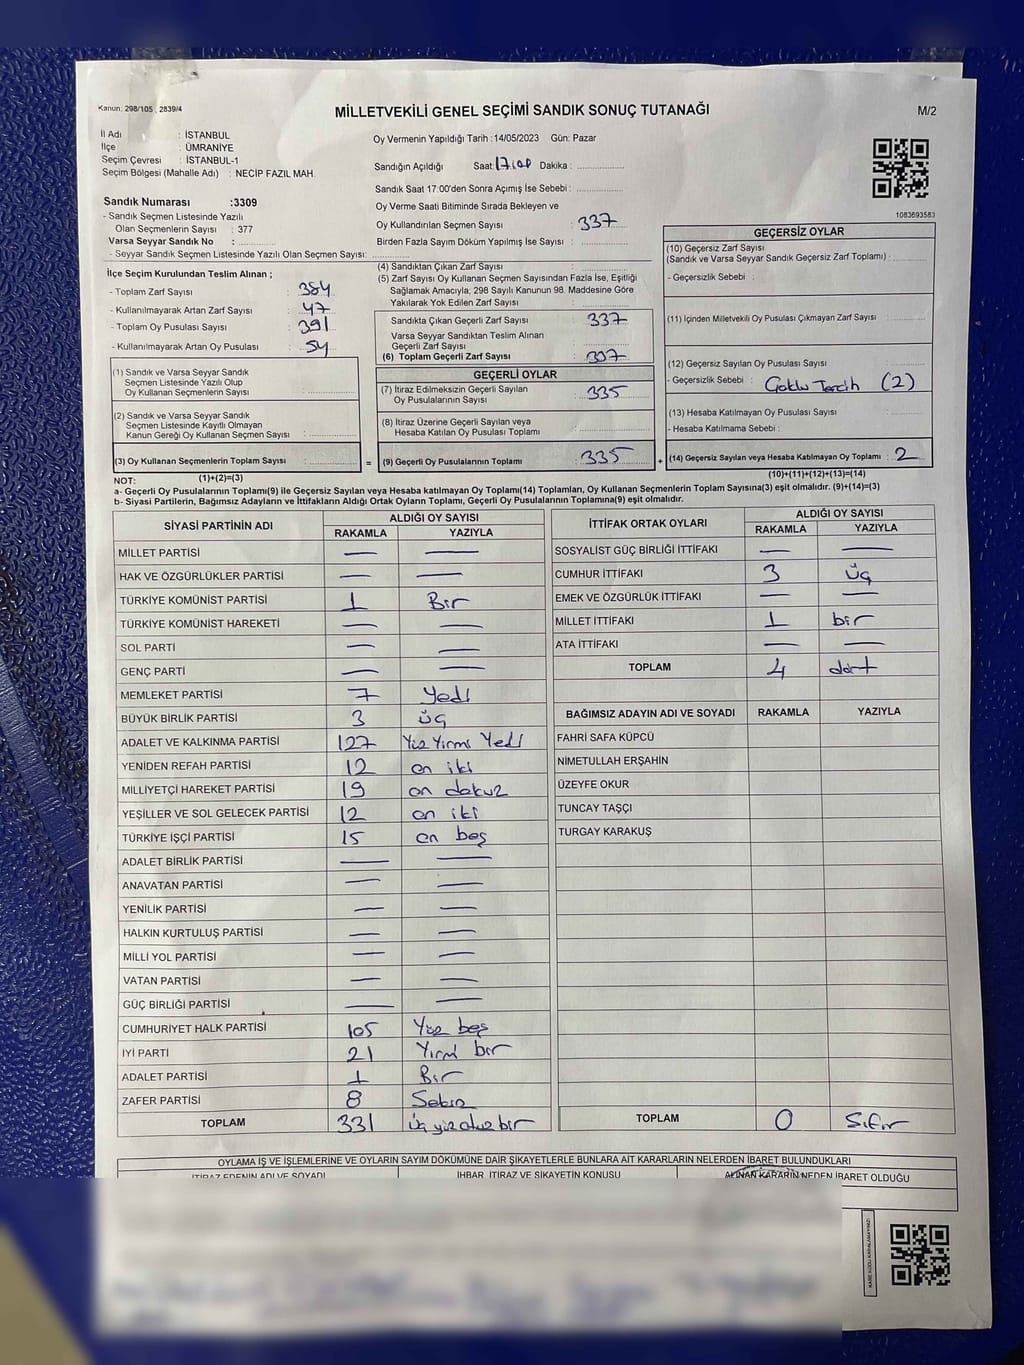 Kanun: 298/105 , 2839/4
MİLLETVEKİLİ GENEL SEÇİMİ SANDIK SONUÇ TUTANAĞI
M/2
İl Adı : İSTANBUL
İlçe : ÜMRANİYE
Seçim Çevresi : İSTANBUL-1
Seçim Bölgesi (Mahalle Adı) : NECİP FAZIL MAH.
Sandık Numarası :3309
- Sandık Seçmen Listesinde Yazılı
Olan Seçmenlerin Sayısı : 377
Varsa Seyyar Sandık No :
- Seyyar Sandık Seçmen Listesinde Yazılı Olan Seçmen Sayısı:
Oy Vermenin Yapıldığı Tarih :14/05/2023 Gün: Pazar
Sandığın Açıldığı Saat: 17:00 Dakika :
Sandık Saat 17:00'den Sonra Açımış İse Sebebi :
Oy Verme Saati Bitiminde Sırada Bekleyen ve
Oy Kullandırılan Seçmen Sayısı : 337
Birden Fazla Sayım Döküm Yapılmış İse Sayısı :
1083693583
İlçe Seçim Kurulundan Teslim Alınan ;
- Toplam Zarf Sayısı : 384
- Kullanılmayarak Artan Zarf Sayısı : 47
- Toplam Oy Pusulası Sayısı : 391
- Kullanılmayarak Artan Oy Pusulası : 54
(1) Sandık ve Varsa Seyyar Sandık
Seçmen Listesinde Yazılı Olup
Oy Kullanan Seçmenlerin Sayısı :
(2) Sandık ve Varsa Seyyar Sandık
Seçmen Listesinde Kayıtlı Olmayan
Kanun Gereği Oy Kullanan Seçmen Sayısı :
(3) Oy Kullanan Seçmenlerin Toplam Sayısı :
(1)+(2)=(3)
(4) Sandıktan Çıkan Zarf Sayısı :
(5) Zarf Sayısı Oy Kullanan Seçmen Sayısından Fazla İse, Eşitliği
Sağlamak Amacıyla, 298 Sayılı Kanunun 98. Maddesine Göre
Yakılarak Yok Edilen Zarf Sayısı :
Sandıkta Çıkan Geçerli Zarf Sayısı : 337
Varsa Seyyar Sandıktan Teslim Alınan
Geçerli Zarf Sayısı :
(6) Toplam Geçerli Zarf Sayısı : 337
GEÇERLİ OYLAR
(7) İtiraz Edilmeksizin Geçerli Sayılan
Oy Pusulalarının Sayısı : 335
(8) İtiraz Üzerine Geçerli Sayılan veya
Hesaba Katılan Oy Pusulası Toplamı :
= (9) Geçerli Oy Pusulalarının Toplamı : 335
GEÇERSİZ OYLAR
(10) Geçersiz Zarf Sayısı
(Sandık ve Varsa Seyyar Sandık Geçersiz Zarf Toplamı) :
- Geçersizlik Sebebi :
(11) İçinden Milletvekili Oy Pusulası Çıkmayan Zarf Sayısı :
(12) Geçersiz Sayılan Oy Pusulası Sayısı :
- Geçersizlik Sebebi : Çoklu Tercih (2)
(13) Hesaba Katılmayan Oy Pusulası Sayısı :
- Hesaba Katılmama Sebebi :
+ (14) Geçersiz Sayılan veya Hesaba Katılmayan Oy Toplamı : 2
(10)+(11)+(12)+(13)=(14)
NOT:
a- Geçerli Oy Pusulalarının Toplamı(9) ile Geçersiz Sayılan veya Hesaba katılmayan Oy Toplamı(14) Toplamları, Oy Kullanan Seçmenlerin Toplam Sayısına(3) eşit olmalıdır. (9)+(14)=(3)
b- Siyasi Partilerin, Bağımsız Adayların ve İttifakların Aldığı Oyların Toplamı, Geçerli Oy Pusulalarının Toplamına(9) eşit olmalıdır.
SİYASİ PARTİNİN ADI ALDIĞI OY SAYISI
RAKAMLA YAZIYLA
MİLLET PARTİSİ — —
HAK VE ÖZGÜRLÜKLER PARTİSİ — —
TÜRKİYE KOMÜNİST PARTİSİ 1 Bir
TÜRKİYE KOMÜNİST HAREKETİ — —
SOL PARTİ — —
GENÇ PARTİ — —
MEMLEKET PARTİSİ 7 Yedi
BÜYÜK BİRLİK PARTİSİ 3 üç
ADALET VE KALKINMA PARTİSİ 127 Yüz Yirmi Yedi
YENİDEN REFAH PARTİSİ 12 on iki
MİLLİYETÇİ HAREKET PARTİSİ 19 on dokuz
YEŞİLLER VE SOL GELECEK PARTİSİ 12 on iki
TÜRKİYE İŞÇİ PARTİSİ 15 on beş
ADALET BİRLİK PARTİSİ — —
ANAVATAN PARTİSİ — —
YENİLİK PARTİSİ — —
HALKIN KURTULUŞ PARTİSİ — —
MİLLİ YOL PARTİSİ — —
VATAN PARTİSİ — —
GÜÇ BİRLİĞİ PARTİSİ — —
CUMHURİYET HALK PARTİSİ 105 Yüz beş
İYİ PARTİ 21 Yirmi bir
ADALET PARTİSİ 1 Bir
ZAFER PARTİSİ 8 Sekiz
TOPLAM 331 üç yüz otuz bir
İTTİFAK ORTAK OYLARI ALDIĞI OY SAYISI
RAKAMLA YAZIYLA
SOSYALİST GÜÇ BİRLİĞİ İTTİFAKI — —
CUMHUR İTTİFAKI 3 üç
EMEK VE ÖZGÜRLÜK İTTİFAKI — —
MİLLET İTTİFAKI 1 bir
ATA İTTİFAKI — —
TOPLAM 4 dört
BAĞIMSIZ ADAYIN ADI VE SOYADI RAKAMLA YAZIYLA
FAHRİ SAFA KÜPCÜ
NİMETULLAH ERŞAHİN
ÜZEYFE OKUR
TUNCAY TAŞÇI
TURGAY KARAKUŞ
TOPLAM 0 Sıfır
OYLAMA İŞ VE İŞLEMLERİNE VE OYLARIN SAYIM DÖKÜMÜNE DAİR ŞİKAYETLERLE BUNLARA AİT KARARLARIN NELERDEN İBARET BULUNDUKLARI
İTİRAZ EDENİN ADI VE SOYADI İHBAR, İTİRAZ VE ŞİKAYETİN KONUSU ALINAN KARARIN NEDEN İBARET OLDUĞU